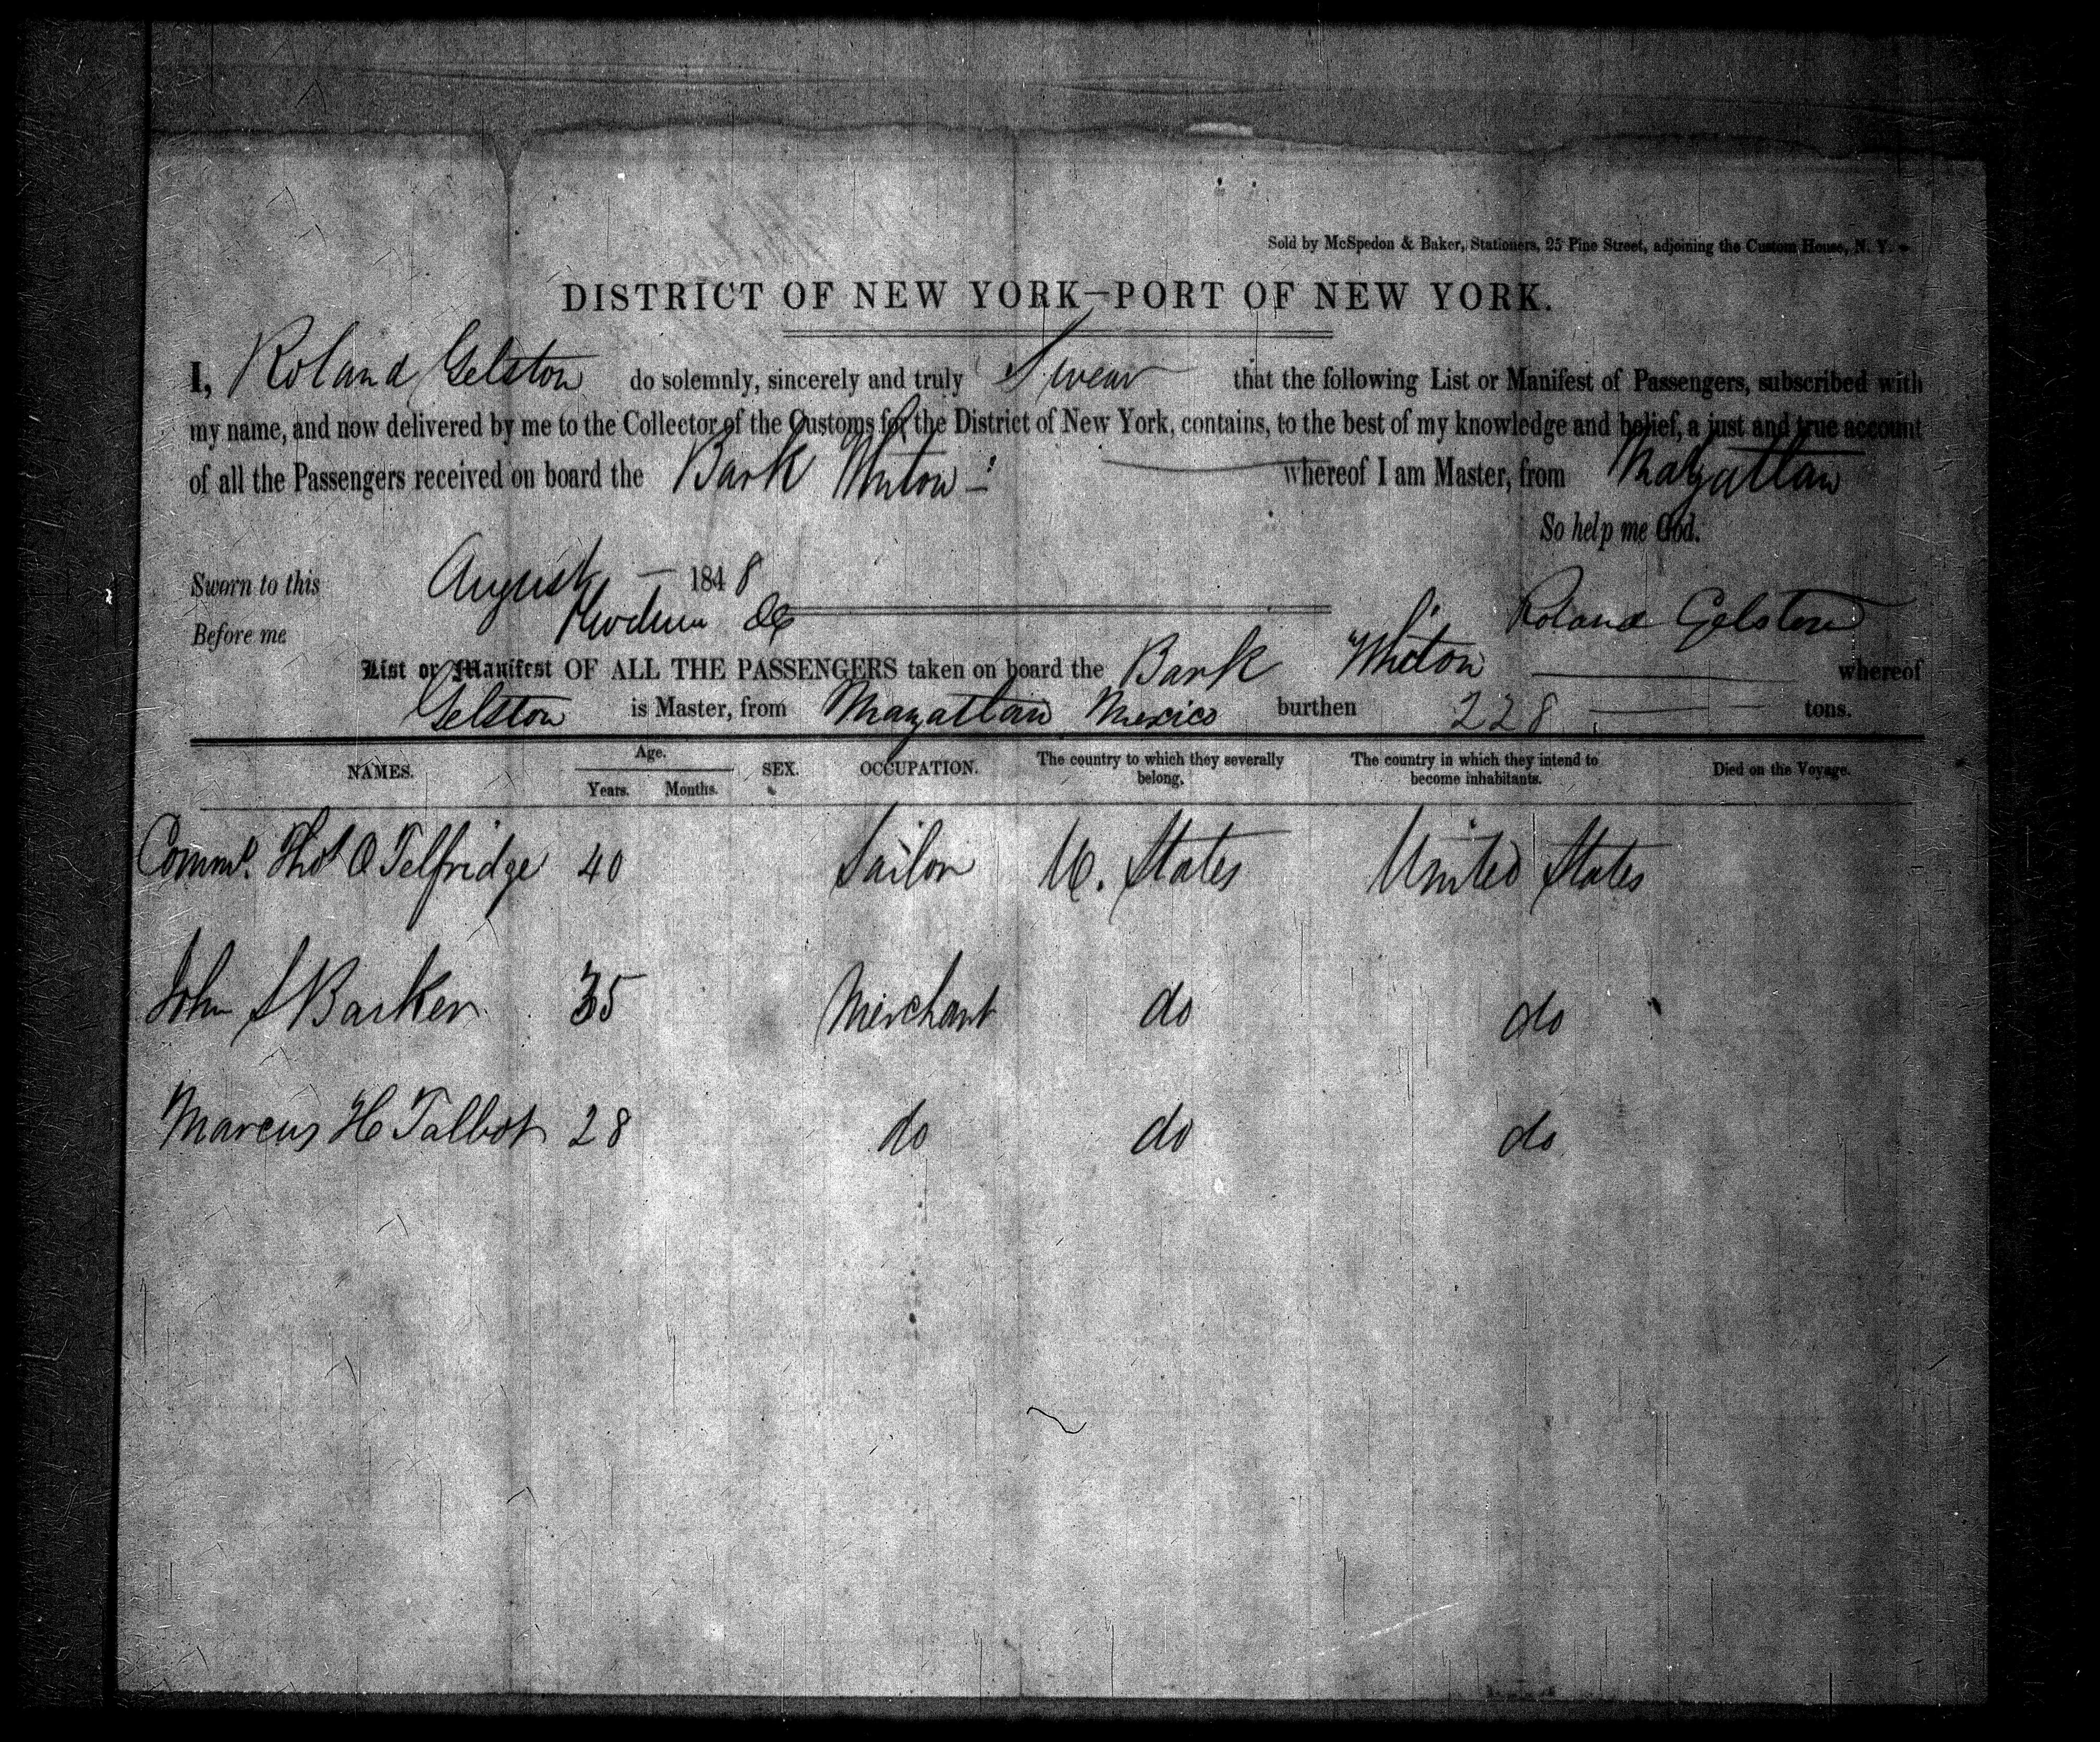 Sold by McSpedon & Baker, Stationers, 25 Pine Street, adjoining the Custom House, N. Y.
DISTRICT OF NEW YORK—PORT OF NEW YORK.
I, Roland Gelston do solemnly, sincerely and truly Swear that the following List or Manifest of Passengers, subscribed with
my name, and now delivered by me to the Collector of the Customs for the District of New York, contains, to the best of my knowledge and belief, a just and true account
of all the Passengers received on board the Bark Whiton whereof I am Master, from Mazattan
So help me God.
Sworn to this August — 1848
Before me Roland Gelston
List or Manifest OF ALL THE PASSENGERS taken on board the Bark Whiton whereof
Gelston is Master, from Mazattan Mexico burthen 228 tons.
NAMES. Age. Years. Months. SEX. OCCUPATION. The country to which they severally belong. The country in which they intend to become inhabitants. Died on the Voyage.
Commr. Thos O Telfridge 40 Sailor U. States United States
John S Barker 35 Merchant do do
Marcus H Talbot 28 do do do